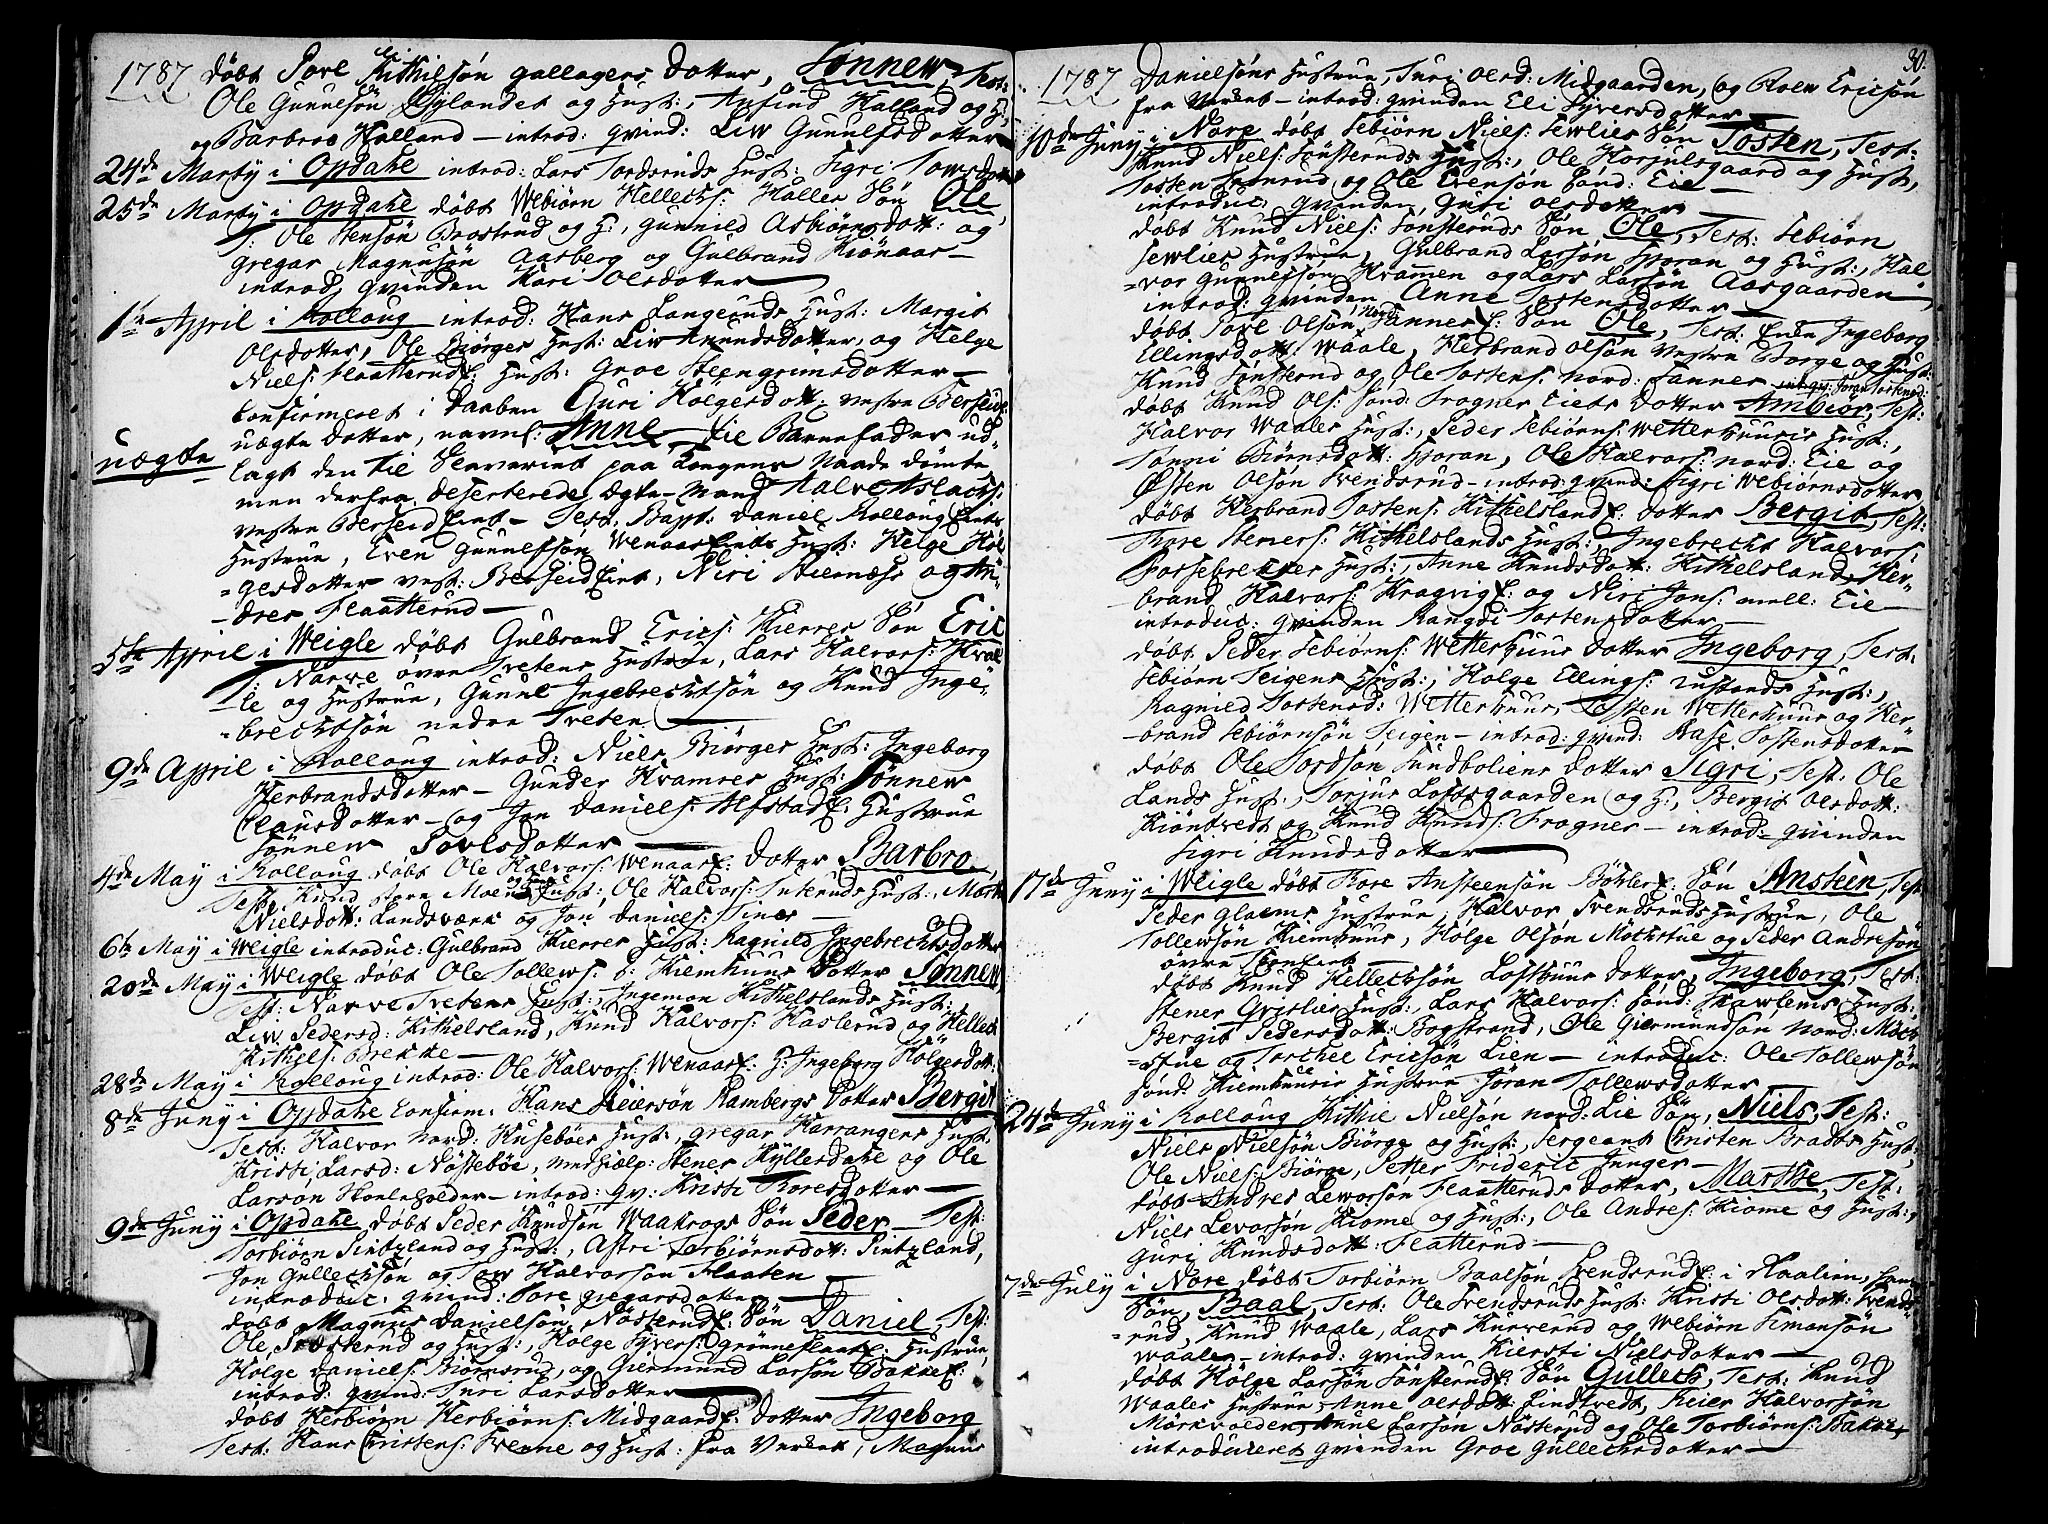 1787 døbt Pove Kithilsøn gallagers Dotter, Sønnew, Test:
Ole Gunnesøn Øylandet og Hust: Anfind Halland og H:
og Barbroe Holland – introd: qvind: Liw Gunulfsdotter
24de Marty i Opdahl introd: Lars Tordsruds Hust: Sigri
25de Marty i Opdahl døbt Webiørn Hellechs: Haller Søn Ole
T: Ole Stensøn Brostrud og H:, Gunnild Asbiørnsdott: og
gregar Magnusøn Aasberg og Gulbrand Kiønaas –
introd: qvinden Kari Olsdotter
1te April i Rolloug introd: Hans Langeruds Hust: Margit
Olsdotter, Ole Biørges Hust: Liw Amundsdotter, og Helge
Niels: Flaatteruds Hust: Groe Steengrimsdotter –
Confirmeret i Daaben Guri Holgersdott: vestre Berseid
uægte uægte Dotter, navnl: Anne – til Barnefader ud-
lagt den til Slaveriet paa Kongens Naade dømte
men derfra deserterede ægte-mand Halv: Aslachs:
vestre Berseid Eiet – Test. Bapt: Daniel Rolloug Eiets
Hustrue, Even Gunnelsøn Wenaas Eiets Hust: Helge Hol-
gesdotter vest: Berseid Eiet, Niri Stiernæss og An-
dres Flaatterud –
5te April i Weigle døbt Gulbrand Erics: Kierres Søn Eric
T: Narwe øvre Tvetens Hustrue, Lars Halvors: Hval-
e og Hustrue, Gunnl Ingebrechtsøn og Knud Inge-
brechtsøn nedre Tveten
9de April i Rolloug introd: Niels Biørges Hust: Ingeborg
Herbrandsdotter – Gunder Kramres Hust: Sønnew
Clausdotter – og Jon Daniels: Alfstads: Hustrue
Sønnew Povlsdotter
4de May i Rolloug døbt Ole Halvors: Wenaas: Dotter Barbro,
Test: Knud store Moen og Hust:, Ole Halvors: Hust: Marte
Nielsdott: Landsværk og Jon Daniels: Tines –
6te May i Weigle introduc: Gulbrand Kierres Hust: Ragnild Ingebrechtsdotter
20de May i Weigle døbt Ole Tollews: S: Kiemhuus Dotter Sønnew
Test: Narve Tvetens Hust:, Ingemon Kithelslands Hust:
Liw Pedersd: Kithelsland, Knud Halvors: Haslerud og Hellech
Kithels: Brekke –
28de May i Rolloug introd: Ole Halvors: Wenaas: H: Ingeborg Holgersdott:
8de Juny i Opdahl Confirm: Hans Reiersøn Rambergs Dotter Bergit
Test: Halvor nord: Husebøes Hust:, gregar Harrangens Hust:
Kristi Larsd: Nøstebøe, medhielp: Stener Hyllesdahl og Ole
Larson Skoleholder – introd: qv: Kristi Toresdotter –
9de Juny i Opdahl døbt Peder Knudsøn Waakrogs Søn Peder – Test:
Torbiørn Pintzland og Hust:, Astri Torbiørnsdott: Pintzland,
Jon Gullechsøn og Tow Halvorson Flaaten –
introduc: qvind: Tore gregarsdotter –
døbt Magnus Danielsøn Nøsterud: Søn Daniel, Test:
Ole og Hust:, Holge Syvers: Grønneflaat: Hustrue,
Holge Daniels: Biørnsrud, og Giermund Larsøn Bakke:
introd: qvind: Turi Larsdotter
døbt Herbiørn Herbiørns: Midgaard: Dotter Ingeborg
Test: Hans Christens: Frenne og Hust: fra Verket, Magnus
30.
1787 Danielsøns Hustrue, Turi Olsd: Midgaarden, og Roew Ericsøn
fra Verket – introd: qvinden Eli Syversdotter
10de Juny i Nore døbt Sebiørn Niels: Sewlies Søn Tosten, Test:
Knud Niels: Sønsteruds Hust:, Ole Horjulsgaard og Hust,
Tosten og Ole Evensøn sønd: Eie –
introduc: qvinden Guri Olsdotter
døbt Knud Niels: Sønsteruds Søn Ole, Test: Sebiørn
Sewlies Hustrue, Gulbrand Larsøn Sporan og Hust:, Hal-
vor Gunnessøn Kramen og Lars Larsøn Aasgaarden
introd: qvinden Anne Tostensdotter
døbt Povl Olsøn Nord Sannes: Søn Ole, Test: Enke Ingeborg
Ellingsdott: Waale, Herbrand Olsøn vestre Borge og Hust:
Knud Sønsterud og Ole Tostens: nord: Sannes introd: Jøran Tostensd:
døbt Knud Ols: sønd: Frogner Eiets Dotter Ambiør, Test:
Halvor Waales Hust:, Peder Sebiørns: Wetterhuus Hust:,
Tonni Biørnsdott: Sporan, Ole Halvors: nord: Eie og
Østen Olsøn Svendsrud – introd: qvind: Sigri Webiørnsdotter
døbt Herbrand Tostens: Kithelsland: Dotter Bergit, Test:
Tore Steners: Kithelslands Hust:, Ingebrecht Halvors:
Fossebrekkes Hust:, Anne Knudsdott: Kithelsland, Her-
brand Halvors: Kragvig: og Niri Jons: mell: Eie –
introduc: qvinden Rangdi Tostensdotter –
døbt Peder Sebiørns: Wetterhuus Dotter Ingeborg, Test:
Sebiørn Teigens Hust:, Holge Ellings: Rustands Hust:,
Ragnild Tostensd: Wetterhuus, Tosten Wetterhuus og Her-
brand Sebiørnsøn Teigen – introd: qvind: Aase Tostensdotter
døbt Ole Tordsøn Sundboliens Dotter Sigri, Test: Ole
Lands Hust:, Torjus Loftsgaarden og H:, Bergit Olsdott:
Kiøntvedt og Knud Knuds: Frogner – introd: qvinden
Sigri Knudsdotter
17de Juny i Weigle døbt Tore Ansteensøn Bøhler: Søn Ansteen, Test:
Peder Glaems Hustrue, Halvor Svendsruds Hustrue, Ole
Tollewsøn Kiemhuus, Holge Olsøn Mochstue og Peder Andresøn
øvre
døbt Knud Hellechsøn Loftshuus Dotter, Ingeborg, Test:
Stener Grislies Hust:, Lars Halvors: sønd: Skawlems Hust:
Bergit Pedersdott: Bogstrand, Ole Giermundsøn nord: Moch-
stue og Torchel Ericsøn Lien – introduc: Ole Tollewsøn
sønd: Kiemhuus Hustrue Jøran Tollewsdotter
24de Juny i Rolloug Kithil Nielsøn nord: Lie Søn, Niels, Test:
Niels Nielsøn Biørge og Hust:, Sergeant Christen Bradts Hust,
Ole Niels: Biørge, Petter Frideric Junger –
døbt Andres Leworsøn Flaatteruds Dotter, Marthe, Test:
Niels Levorsøn Kiome og Hust:, Ole Andres: Kiome og Hust:,
Guri Knudsdott: Flatterud –
7de July i Nore døbt Torbiørn Baalsøn Svendsrud: i Haalien,
Søn, Baal, Test: Ole Svendsruds Hust: Kristi Olsdott: Svends-
rud, Knud Waale, Lars Kurverud og Webiørn Simonsøn
Waale – introd: qvinden Kiersti Nielsdotter –
døbt Holge Larsøn Sønsterud: Søn Gullech, Test: Knud
Waales Hustrue, Anne Olsdott Lindtvedt, Reier Halvorsøn
Markvolden, Anne Larsøn Nøsterud og Ole Torbiørns: Bakke,
introduceret qvinden Groe Gullechsdotter –